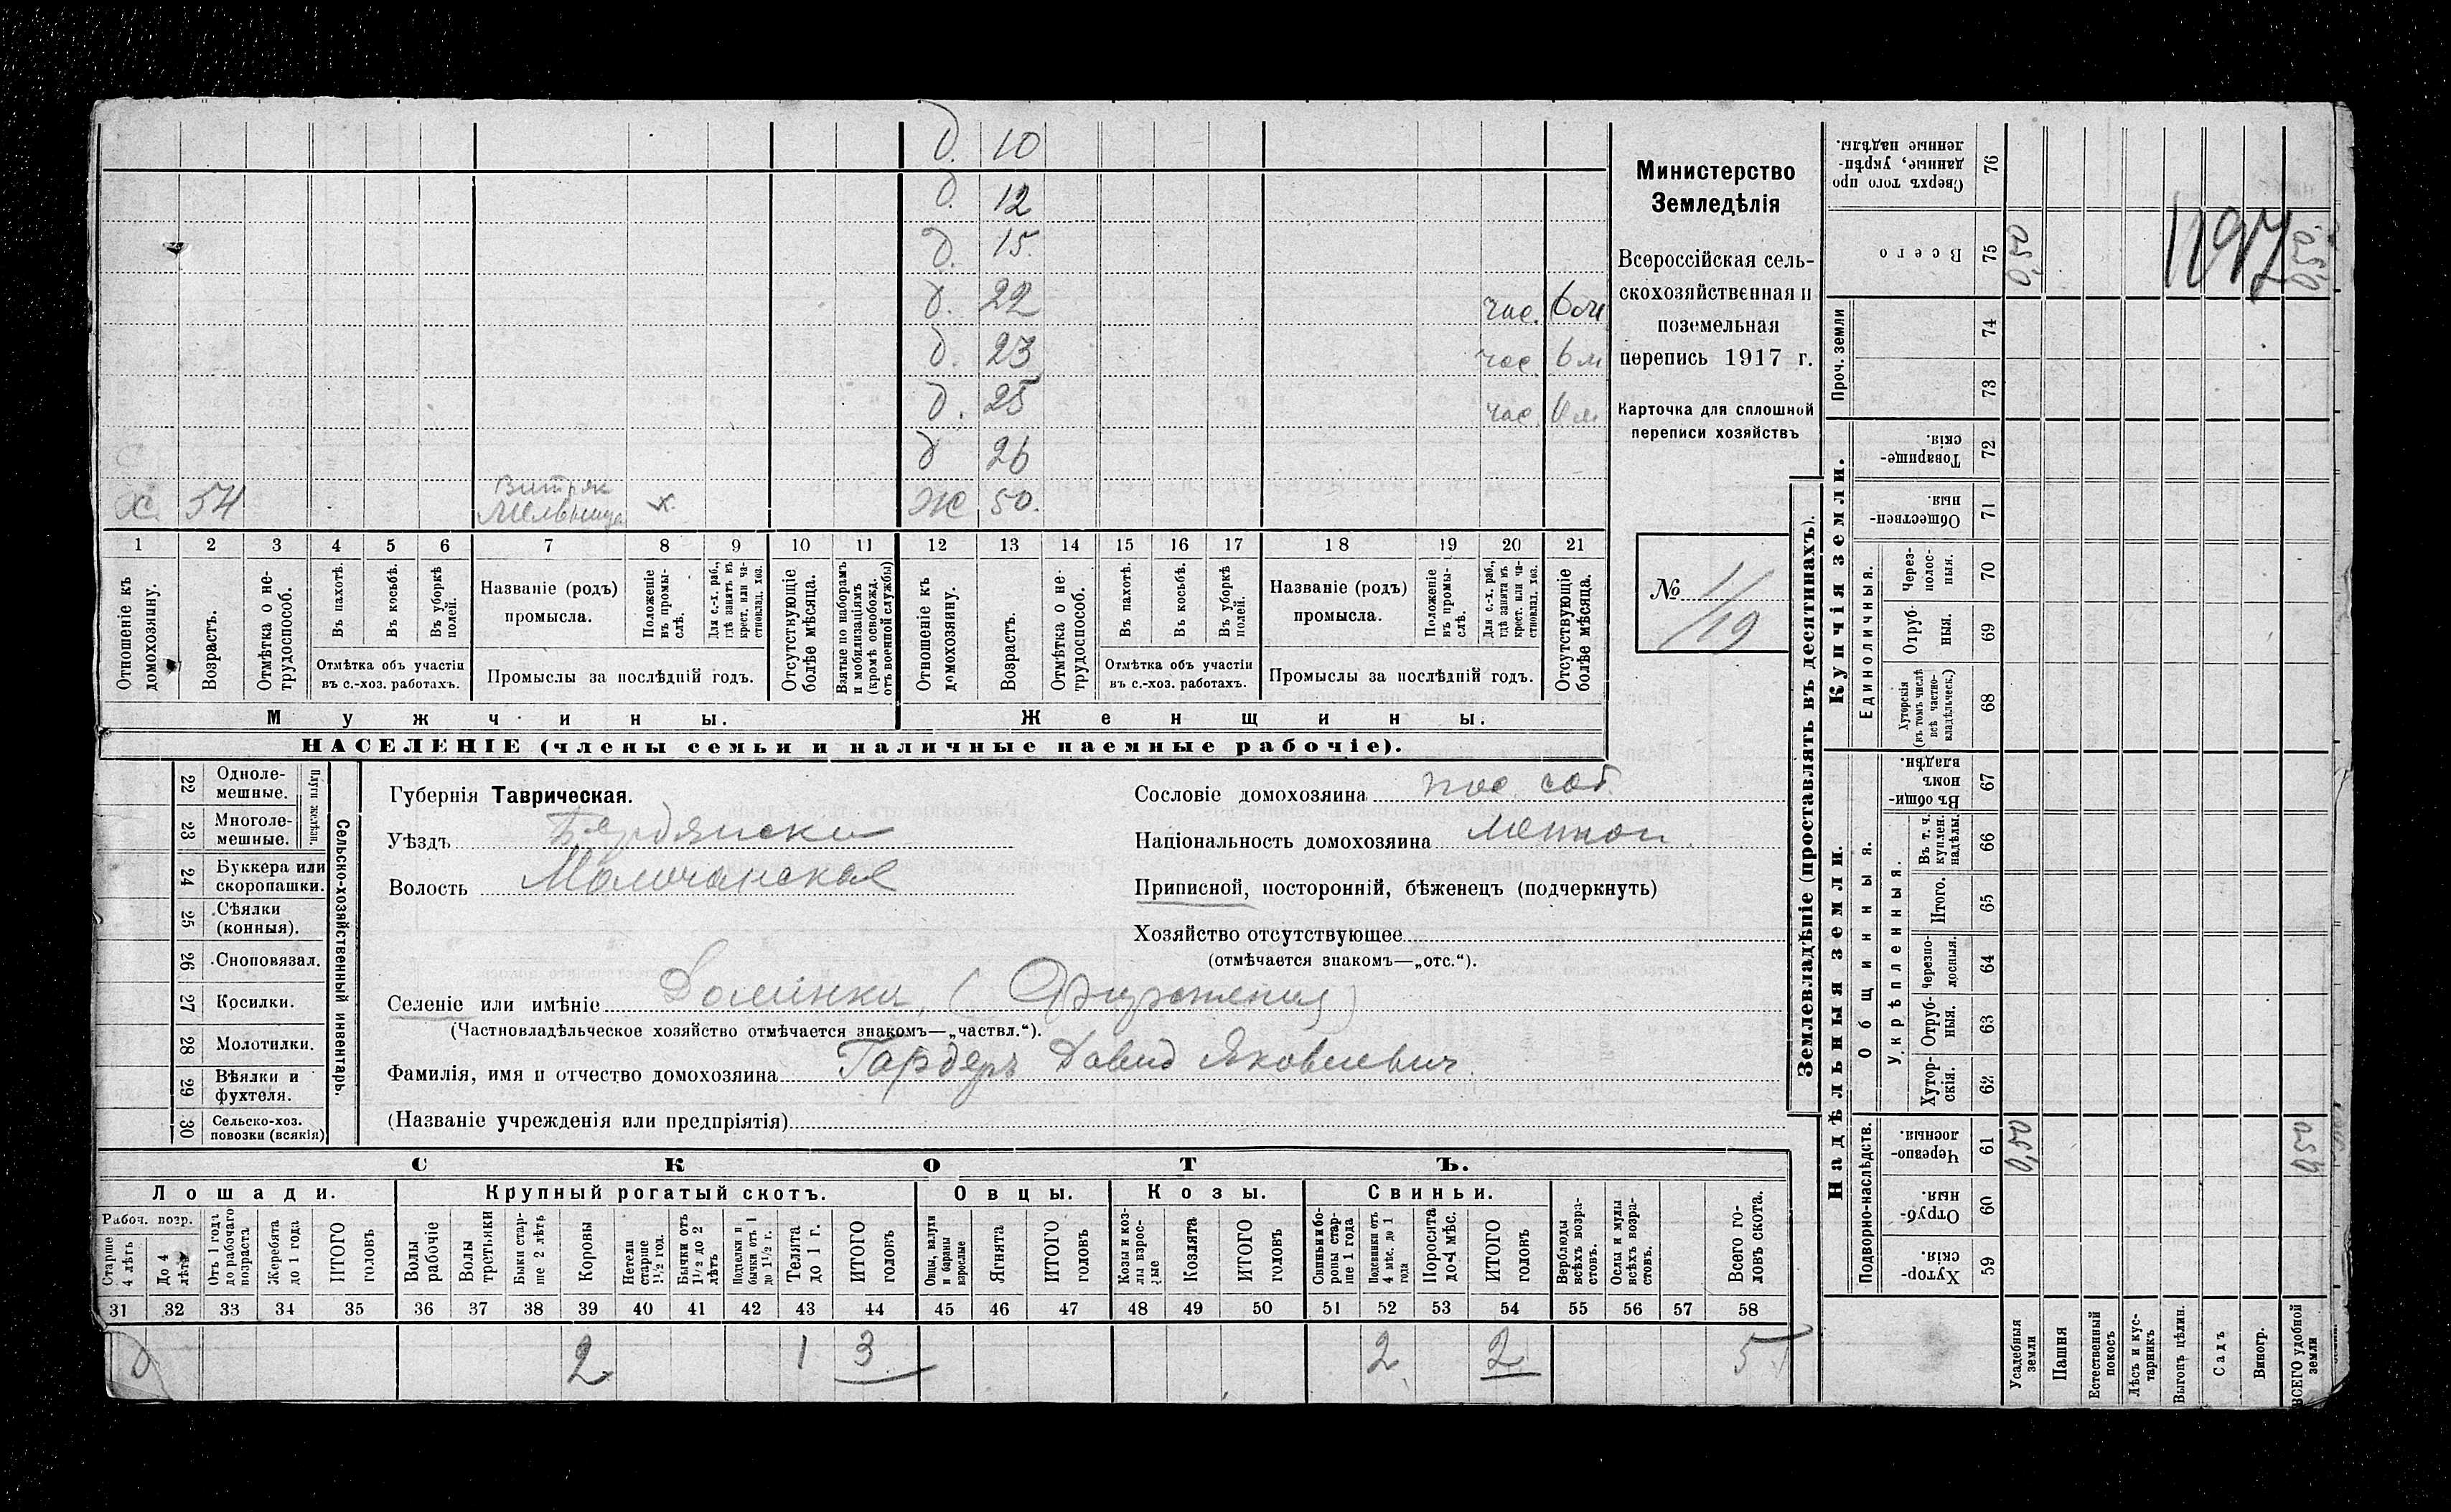 д. 10
д. 12
д. 15.
д. 22 час. 6 м
д. 23 час. 6 м
д. 25 час. 6 м
д 26
х. 54 Витряк Мельница х. Ж 50.
1 2 3 4 5 6 7 8 9 10 11 12 13 14 15 16 17 18 19 20 21
Отношеніе къ домохозяину.
Возрастъ.
Отмѣтка о нетрудоспособ.
Въ пахотѣ.
Въ косьбѣ.
Въ уборкѣ полей.
Отмѣтка объ участіи
въ с.-хоз. работахъ.
Названіе (родъ)
промысла.
Положеніе въ промыслѣ.
Для с.-х. раб., гдѣ занятъ въ крест. или частновлад. хоз.
Промыслы за послѣдній годъ.
Отсутствующіе болѣе мѣсяца.
Взятые по наборамъ и мобилизаціямъ (кромѣ освобожд. отъ военной службы)
Отношеніе къ домохозяину.
Возрастъ.
Отмѣтка о нетрудоспособ.
Въ пахотѣ.
Въ косьбѣ.
Въ уборкѣ полей.
Отмѣтка объ участіи
въ с.-хоз. работахъ.
Названіе (родъ)
промысла.
Положеніе въ промыслѣ.
Для с.-х. раб., гдѣ занята въ крест. или частновлад. хоз.
Промыслы за послѣдній годъ.
Отсутствующіе болѣе мѣсяца.
Мужчины.
Женщины.
НАСЕЛЕНІЕ (члены семьи и наличные наемные рабочіе).
Министерство
Земледѣлія
Всероссійская сель-
скохозяйственная и
поземельная
перепись 1917 г.
Карточка для сплошной
переписи хозяйствъ
№ 1/19
22 Одноле-
мешные.
23 Многоле-
мешные.
Плуги желѣзн.
24 Буккера или
скоропашки.
25 Сѣялки
(конныя).
26 Сноповязал.
27 Косилки.
28 Молотилки.
29 Вѣялки и
фухтеля.
30 Сельско-хоз.
повозки (всякія)
Сельско-хозяйственный инвентарь.
Губернія Таврическая.
Уѣздъ Бердянски
Волость Молочанская
Селеніе или имѣніе
(Частновладѣльческое хозяйство отмѣчается знакомъ—„частвл.“).
Фамилія, имя и отчество домохозяина Гардеръ Давид Яковлевич
(Названіе учрежденія или предпріятія)
Сословіе домохозяина пос. соб.
Національность домохозяина меннон.
Приписной, посторонній, бѣженецъ (подчеркнуть)
Хозяйство отсутствующее
(отмѣчается знакомъ—„отс.“).
СКОТЪ.
Лошади.
Крупный рогатый скотъ.
Овцы.
Козы.
Свиньи.
Рабоч. возр.
Старше 4 лѣтъ
До 4 лѣтъ
Отъ 1 года до рабочаго возраста
Жеребята до 1 года
ИТОГО головъ
Волы рабочіе
Волы третьяки
Быки старше 2 лѣтъ
Коровы
Нетели старше 1½ год.
Бычки отъ 1½ до 2 лѣтъ
Подтелки и бычки отъ 1 до 1½ г.
Телята до 1 г.
ИТОГО головъ
Овцы, валухи и бараны взрослые
Ягнята
ИТОГО головъ
Козы и козлы взрослые
Козлята
ИТОГО головъ
Свиньи и боровы старше 1 года
Подсвинки отъ 4 мѣс. до 1 года
Поросята до 4 мѣс.
ИТОГО головъ
Верблюды всѣхъ возрастовъ.
Ослы и мулы всѣхъ возрастовъ.
Всего головъ скота.
31 32 33 34 35 36 37 38 39 40 41 42 43 44 45 46 47 48 49 50 51 52 53 54 55 56 57 58
2 1 3 2 2 5
Землевладѣніе (проставлять въ десятинахъ).
Надѣльныя земли.
Купчія земли.
Проч. земли
Подворно-наслѣдств.
Общинныя.
Укрѣпленныя.
Единоличныя.
Сверхъ того проданные, укрѣпленные надѣлы. 76
Всего 75 0,50 0,50
1197
74
73
Товарищескія. 72
Общественныя. 71
Через-полосныя. 70
Отрубныя. 69
Хуторскія (въ томъ числѣ всѣ частновладѣльческ.) 68
Въ общиномъ владѣн. 67
Въ т. ч. куплен. надѣлы. 66
Итого. 65
Черезполосныя. 64
Отрубныя. 63
Хуторскія. 62
Черезполосныя. 61 0,50 0,50
Отрубныя. 60
Хуторскія. 59
Усадебныя земли
Пашня
Естественный покосъ
Лѣсъ и кустарникъ
Выгонъ цѣлин.
Садъ
Виногр.
ВСЕГО удобной земли